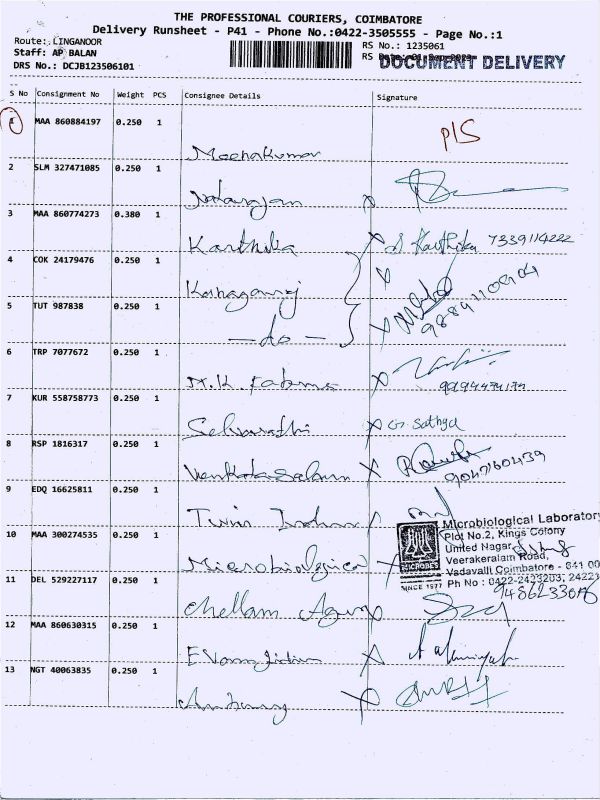 THE PROFESSIONAL COURIERS, COIMBATORE
Delivery Runsheet - P41 - Phone No.:0422-3505555 - Page No.:1
Route: LINGANOOR
RS No.: 1235061
Staff: AP BALAN
RS
DOCUMENT DELIVERY
DRS No.: DCJB123506101
S No Consignment No Weight PCS Consignee Details Signature
1 MAA 860884197 0.250 1
Meenakumar
PIS
2 SLM 327471085 0.250 1
Natarajan X
3 MAA 860774273 0.380 1
Karthika X S Karthika 7339114222
4 COK 24179476 0.250 1
X
5 TUT 987838 0.250 1
- do - X
6 TRP 7077672 0.250 1
M.K. Fatima X
7 KUR 558758773 0.250 1
Selvarathi X G. Sathya
8 RSP 1816317 0.250 1
Venkatasalam X
9047160439
9 EDQ 16625811 0.250 1
Twin
Microbiological Laboratory
Plot No.2, Kings Colony
10 MAA 300274535 0.250 1
United Nagar,
Veerakeralam Road,
Microbiological X
MICROBES
Vadavalli Coimbatore - 641 00
11 DEL 529227117 0.250 1
SINCE 1977
Ph No : 0422-2423203, 24223
Chellam
12 MAA 860630315 0.250 1
X
13 NGT 40063835 0.250 1
Antony X